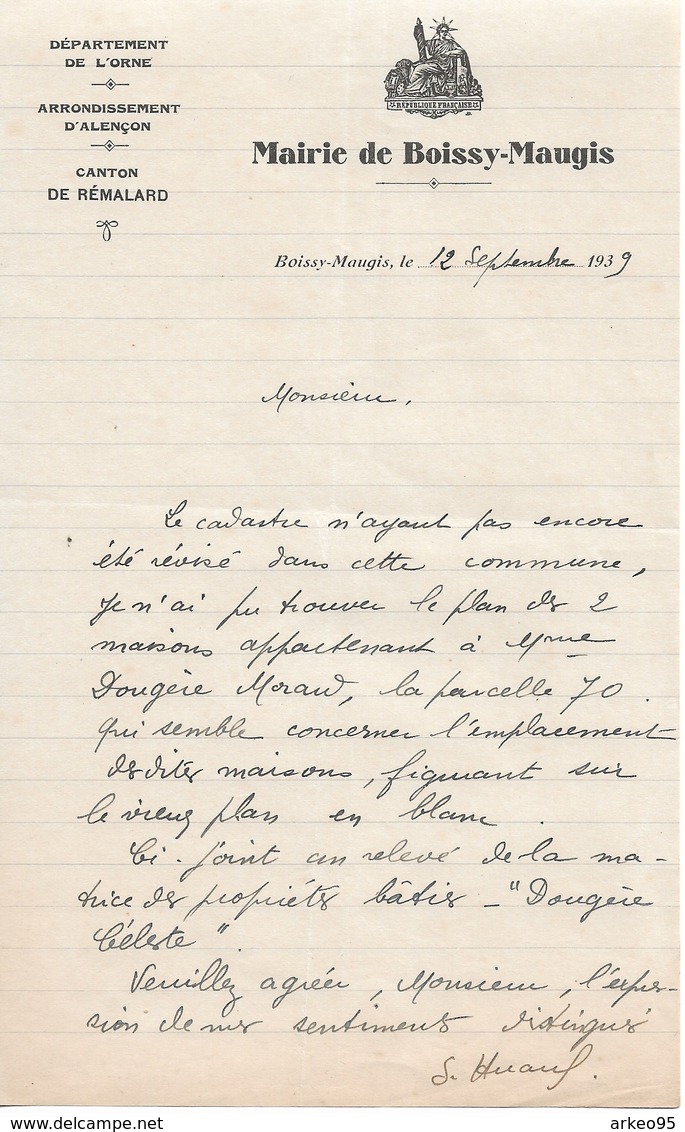 DÉPARTEMENT
DE L'ORNE
ARRONDISSEMENT
D'ALENÇON
CANTON
DE RÉMALARD
RÉPUBLIQUE FRANÇAISE
Mairie de Boissy-Maugis
Boissy-Maugis, le 12 Septembre 1939
Monsieur,
Le cadastre n'ayant pas encore
été révisé dans cette commune,
je n'ai pu trouver le plan des 2
maisons appartenant à Mme
Dougère Morand, la parcelle 70
qui semble concerner l'emplacement
desdites maisons, figurant sur
le vieux plan en blanc.
Ci-joint un relevé de la ma-
trice des propriétés bâties - "Dougère
Céleste".
Veuillez agréer, Monsieur, l'expres-
sion de mes sentiments distingués
S.
delcampe.net
arkeo95